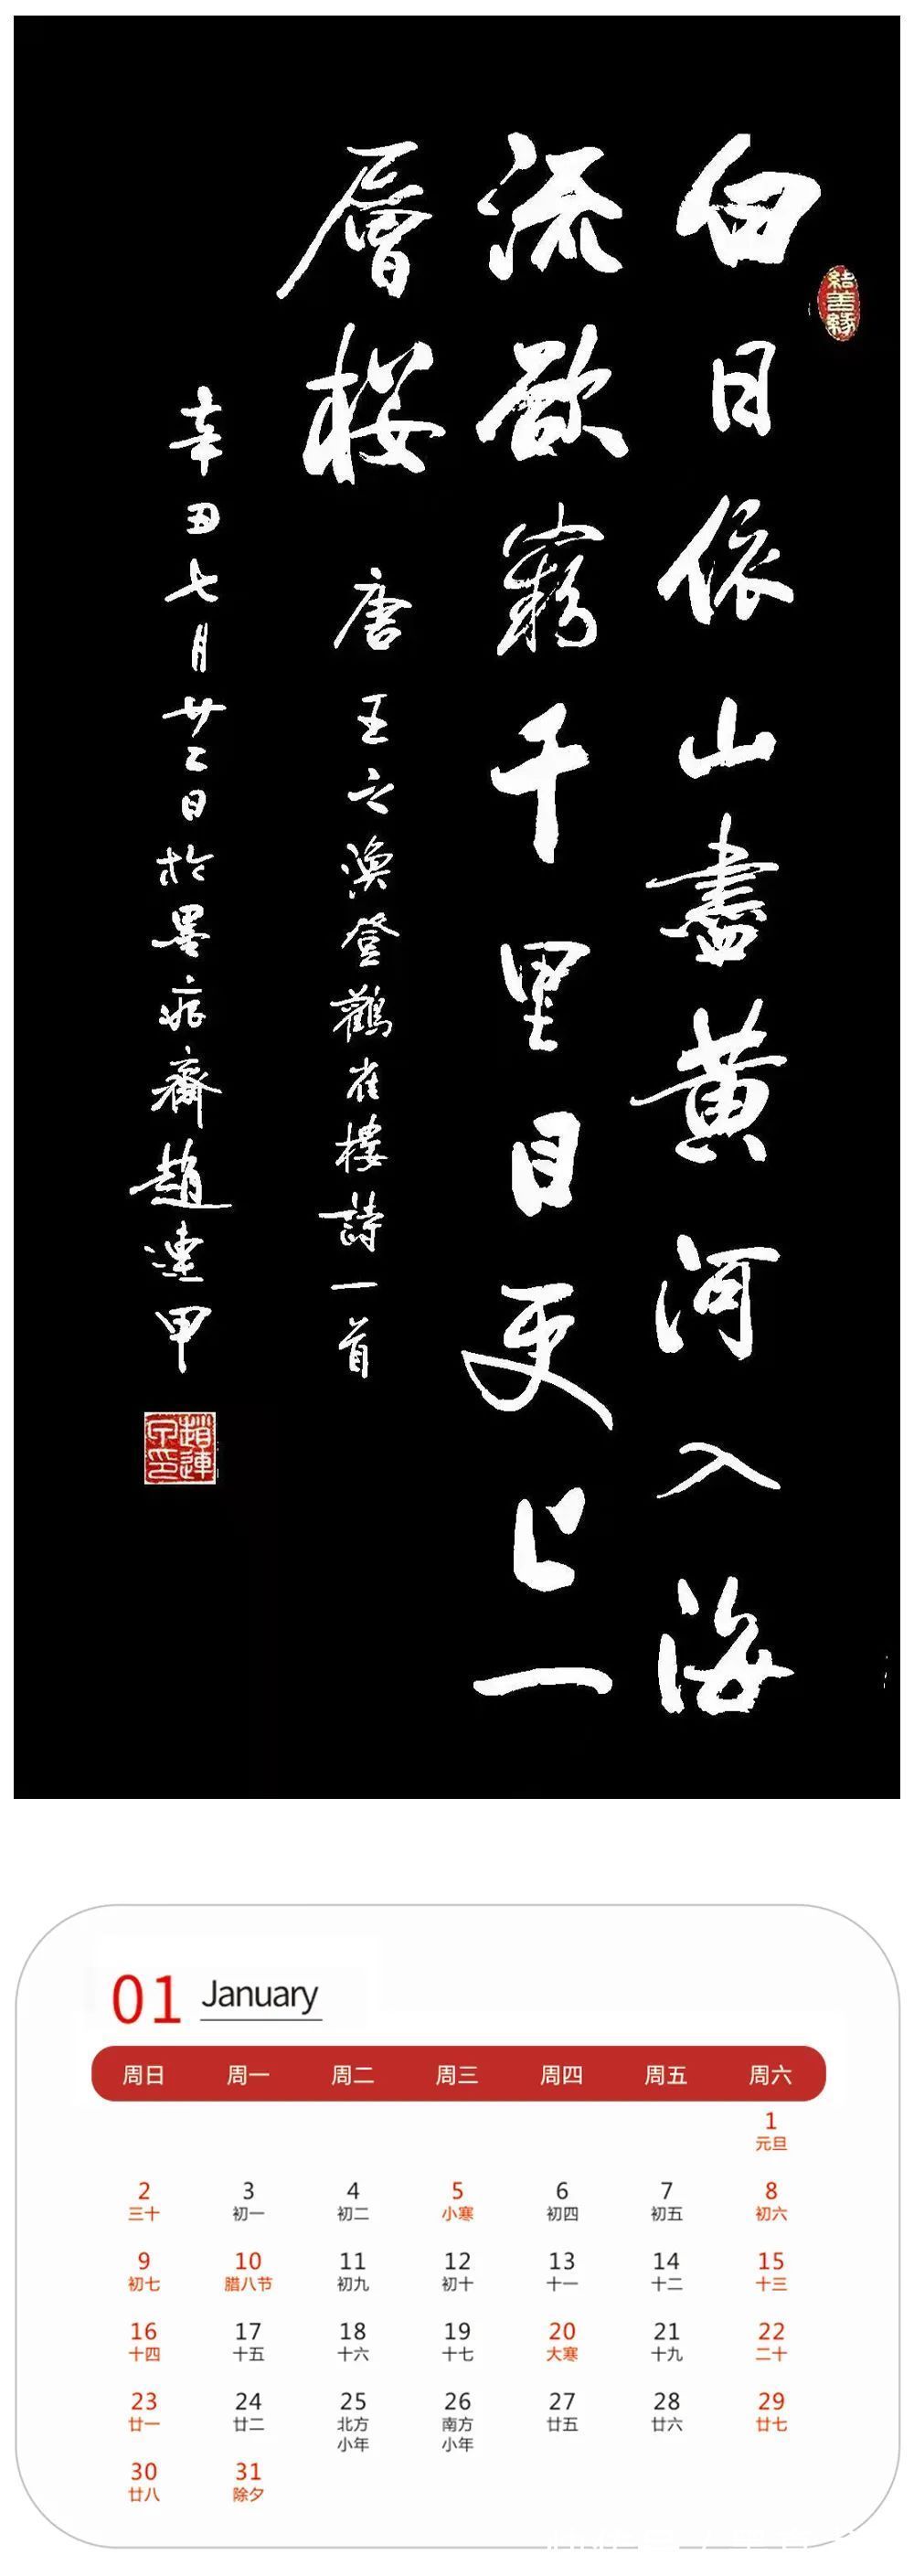 白日依山盡黄河入海
流欲窮千里目更上一
層楼
唐王之渙登鸛雀樓詩一首
辛丑七月廿二日於墨痕齋趙連甲
結善緣
趙連甲印
01 January
周日 周一 周二 周三 周四 周五 周六
1
元旦
2 3 4 5 6 7 8
三十 初一 初二 小寒 初四 初五 初六
9 10 11 12 13 14 15
初七 腊八节 初九 初十 十一 十二 十三
16 17 18 19 20 21 22
十四 十五 十六 十七 大寒 十九 二十
23 24 25 26 27 28 29
廿一 廿二 北方 南方 廿五 廿六 廿七
小年 小年
30 31
廿八 除夕